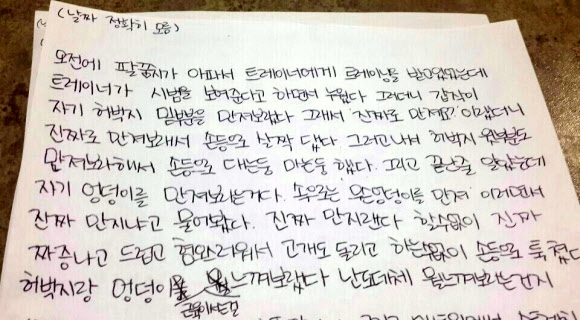 (날짜 정확히 모름)
오전에 팔꿈치가 아파서 트레이너에게 트레이닝을 받고있었는데
트레이너가 시범을 보여준다고 하면서 누웠다 그러더니 갑자기
자기 허벅지 밑부분을 만져보랬다 그래서 진짜로 만져요? 이랬더니
진짜로 만져보래서 손등으로 살짝 댔다 그러고나서 허벅지 윗부분도
만져보라해서 손등으로 대는둥 마는둥 했다. 그리고 끝난줄 알았는데
자기 엉덩이를 만져보라는거다. 속으로는 무슨엉덩이를 만져 이러면서
진짜 만지냐고 물어봤다. 진짜 만지랜다 할수없이 진짜
짜증나고 드럽고 혐오스러워서 고개도 돌리고 하는수없이 손등으로 툭쳤다
허벅지랑 엉덩이 느껴보랬다 난도대체 뭘느껴보라는건지